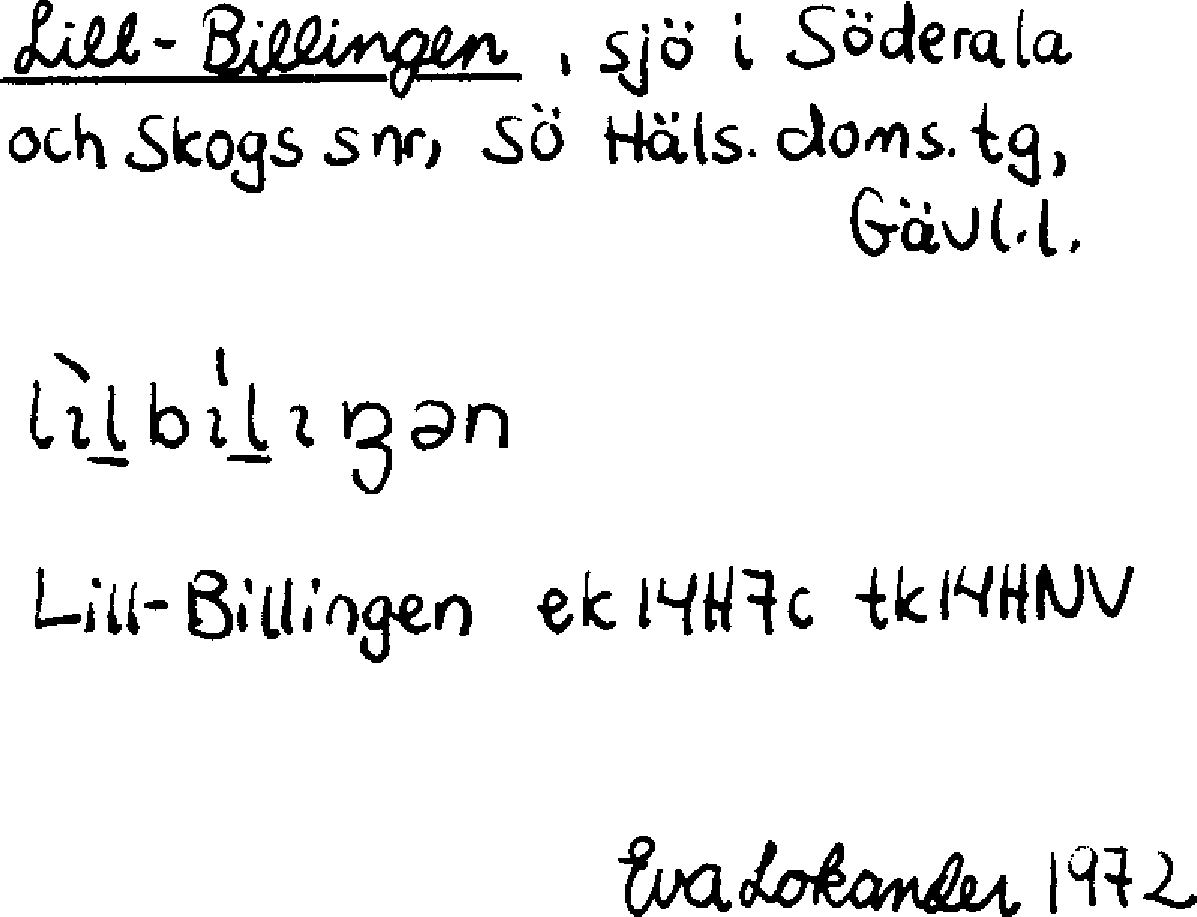 Lill-Billingen, sjö i Söderala
och Skogs snr, Sö Häls. doms. tg,
Gävl.l.
lɪ̀l̲bɪ́l̲ɪŋən
Lill-Billingen ek 14H7c tk14HNV
Eva Lokander 1972